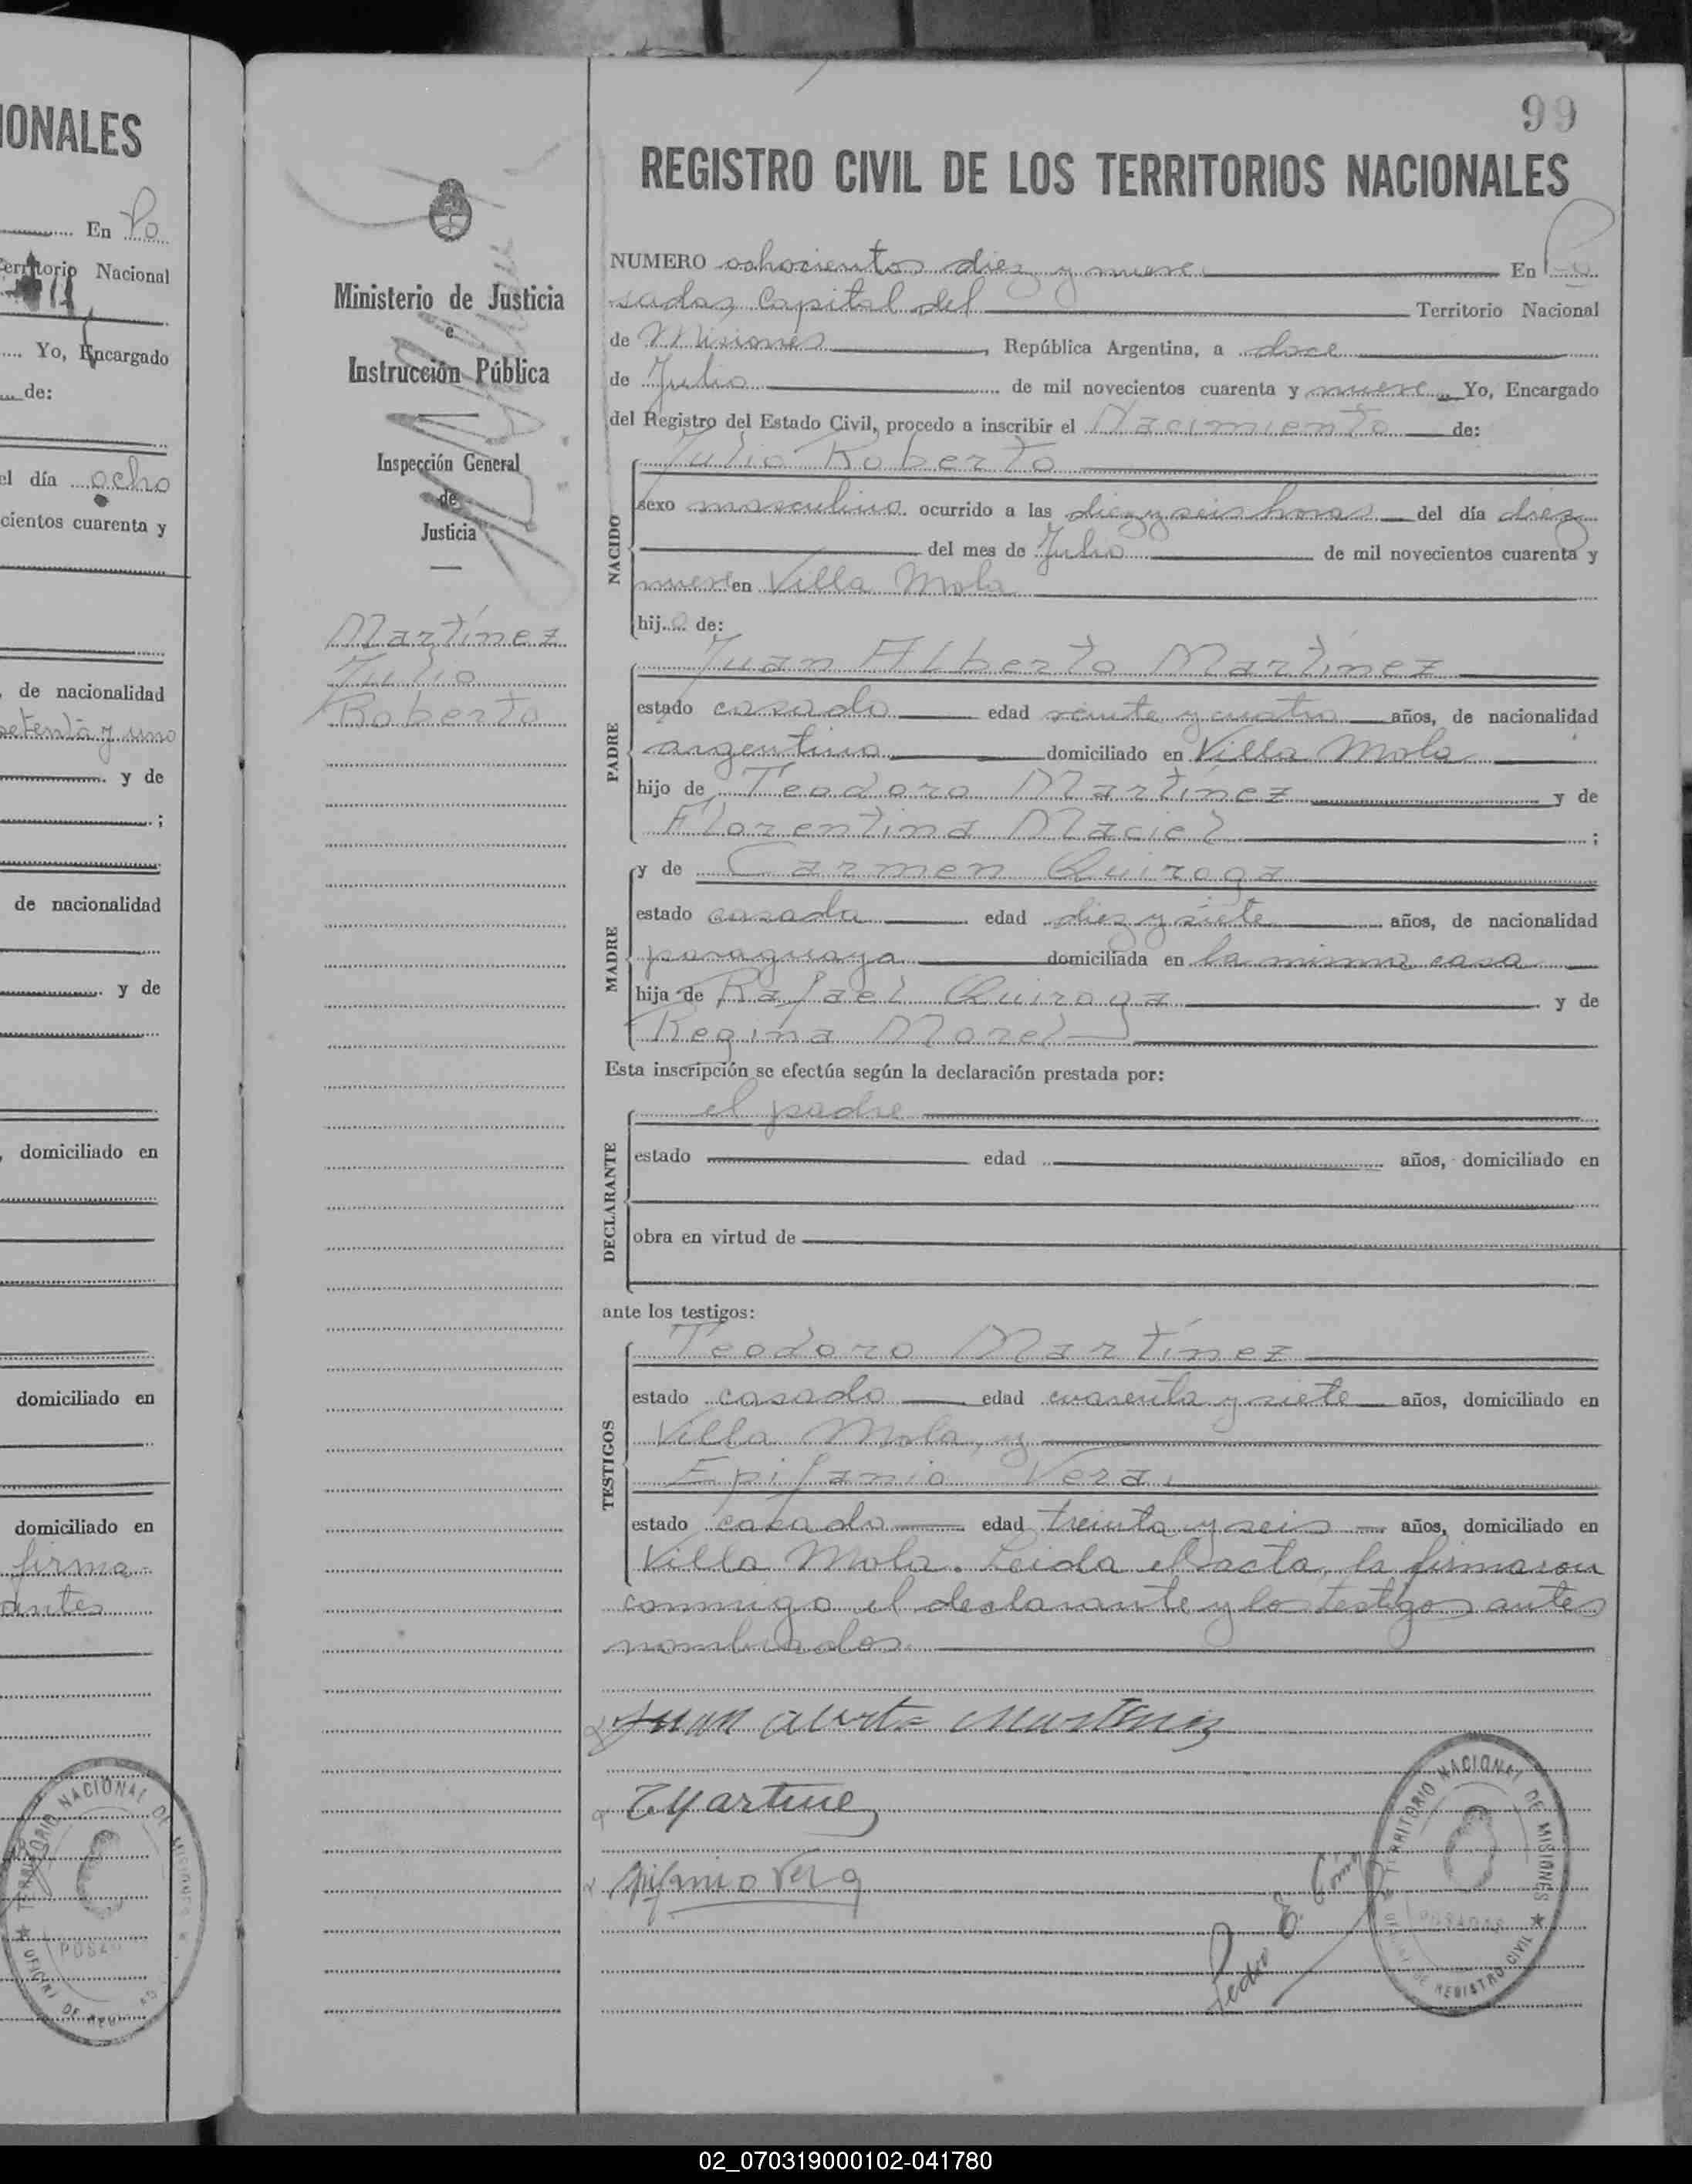 IONALES
En Po
Territorio Nacional
Yo, Encargado
de:
el día ocho
cientos cuarenta y
de nacionalidad
setenta y uno
y de
;
de nacionalidad
y de
domiciliado en
domiciliado en
domiciliado en
firma
antes
TERRITORIO NACIONAL DE MISIONES
POSADAS
99
REGISTRO CIVIL DE LOS TERRITORIOS NACIONALES
Ministerio de Justicia
e
Instrucción Pública
Inspección General
de
Justicia
Martínez
Julio
Roberto
NUMERO ochocientos diez y nueve En Po
sadas Capital del Territorio Nacional
de Misiones, República Argentina, a doce
de Julio de mil novecientos cuarenta y nueve Yo, Encargado
del Registro del Estado Civil, procedo a inscribir el Nacimiento de:
NACIDO
Julio Roberto
sexo masculino ocurrido a las diez y seis horas del día diez
del mes de Julio de mil novecientos cuarenta y
nueve en Villa Mola
hijo de:
PADRE
Juan Alberto Martínez
estado casado edad veinte y cuatro años, de nacionalidad
argentino domiciliado en Villa Mola
hijo de Teodoro Martínez y de
Florentina Maciel ;
MADRE
y de Carmen Quiroga
estado casada edad diez y siete años, de nacionalidad
paraguaya domiciliada en la misma casa
hija de Rafael Quiroga y de
Regina Morel
Esta inscripción se efectúa según la declaración prestada por:
DECLARANTE
el padre
estado edad años, domiciliado en
obra en virtud de
ante los testigos:
TESTIGOS
Teodoro Martínez
estado casado edad cuarenta y siete años, domiciliado en
Villa Mola, y
Epifanio Vera
estado casado edad treinta y seis años, domiciliado en
Villa Mola. Leida el acta, la firmaron
conmigo el declarante y los testigos antes
nombrados.
Juan Alberto Martinez
T Martinez
Epifanio Vera
Pedro E. Góm
TERRITORIO NACIONAL DE MISIONES
POSADAS
OFICINA DE REGISTRO CIVIL
02_070319000102-041780